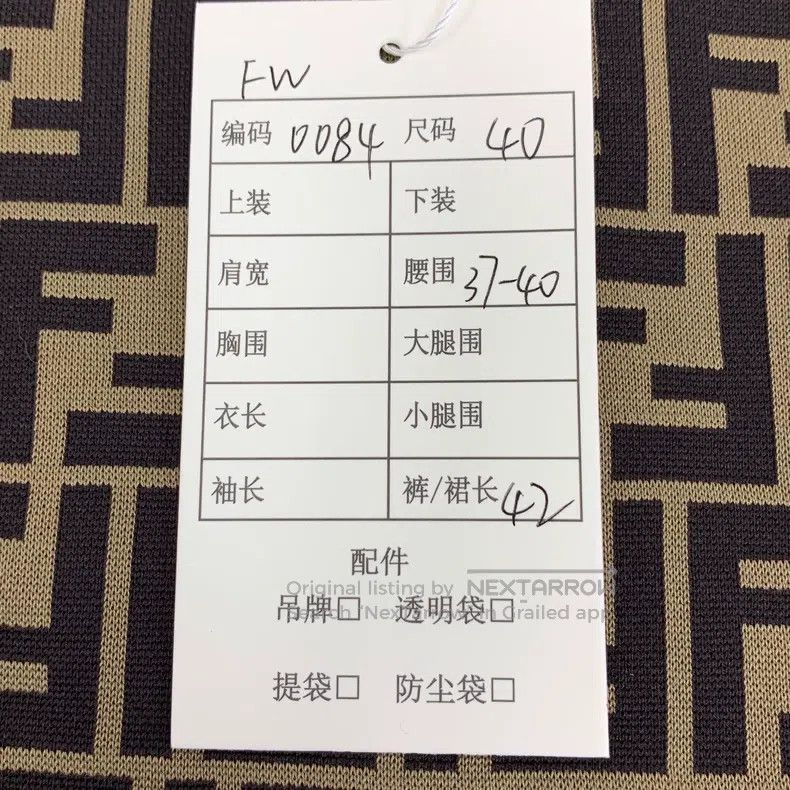 FW
编码 0084 尺码 40
上装 下装
肩宽 腰围 37-40
胸围 大腿围
衣长 小腿围
袖长 裤/裙长 42
配件
Original listing by NEXTARROW
吊牌□ 透明袋□
Search "Nextarrow" on Grailed app
提袋□ 防尘袋□